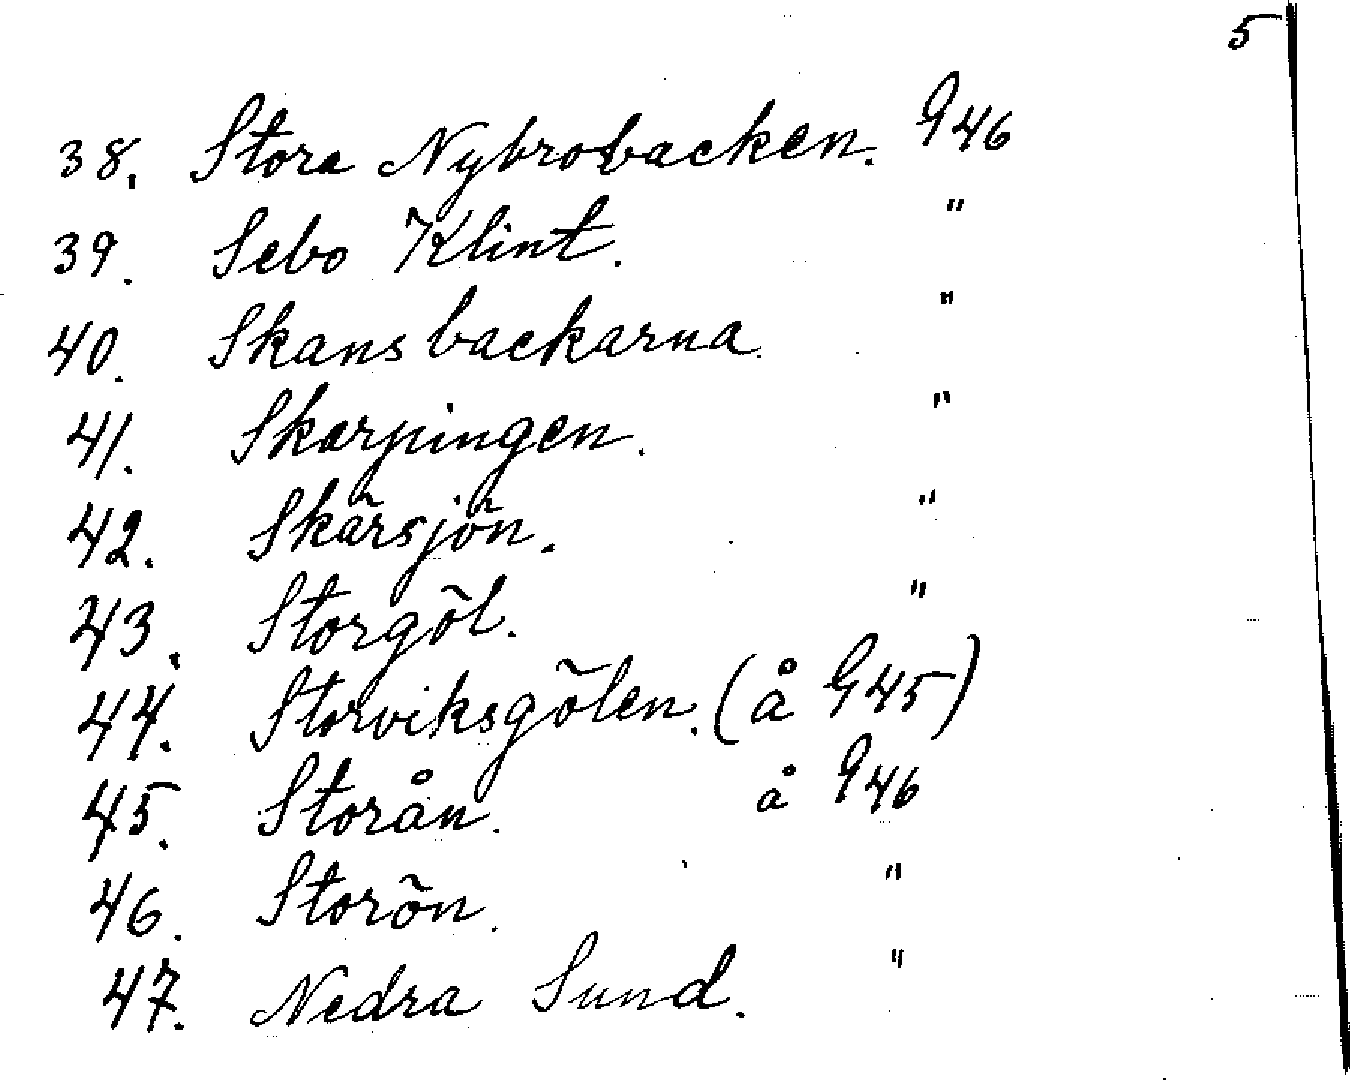 5
38. Stora Nybrobacken. G46
39. Sebo Klint. "
40. Skansbackarna. "
41. Skarpingen. "
42. Skärsjön. "
43. Storgöl. "
44. Storviksgölen. (å G45)
45. Storån. å G46
46. Storön. "
47. Nedra Sund. "